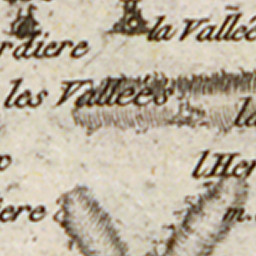 la Vallée
rdiere
les Vallées
la
lHer
iere
m.